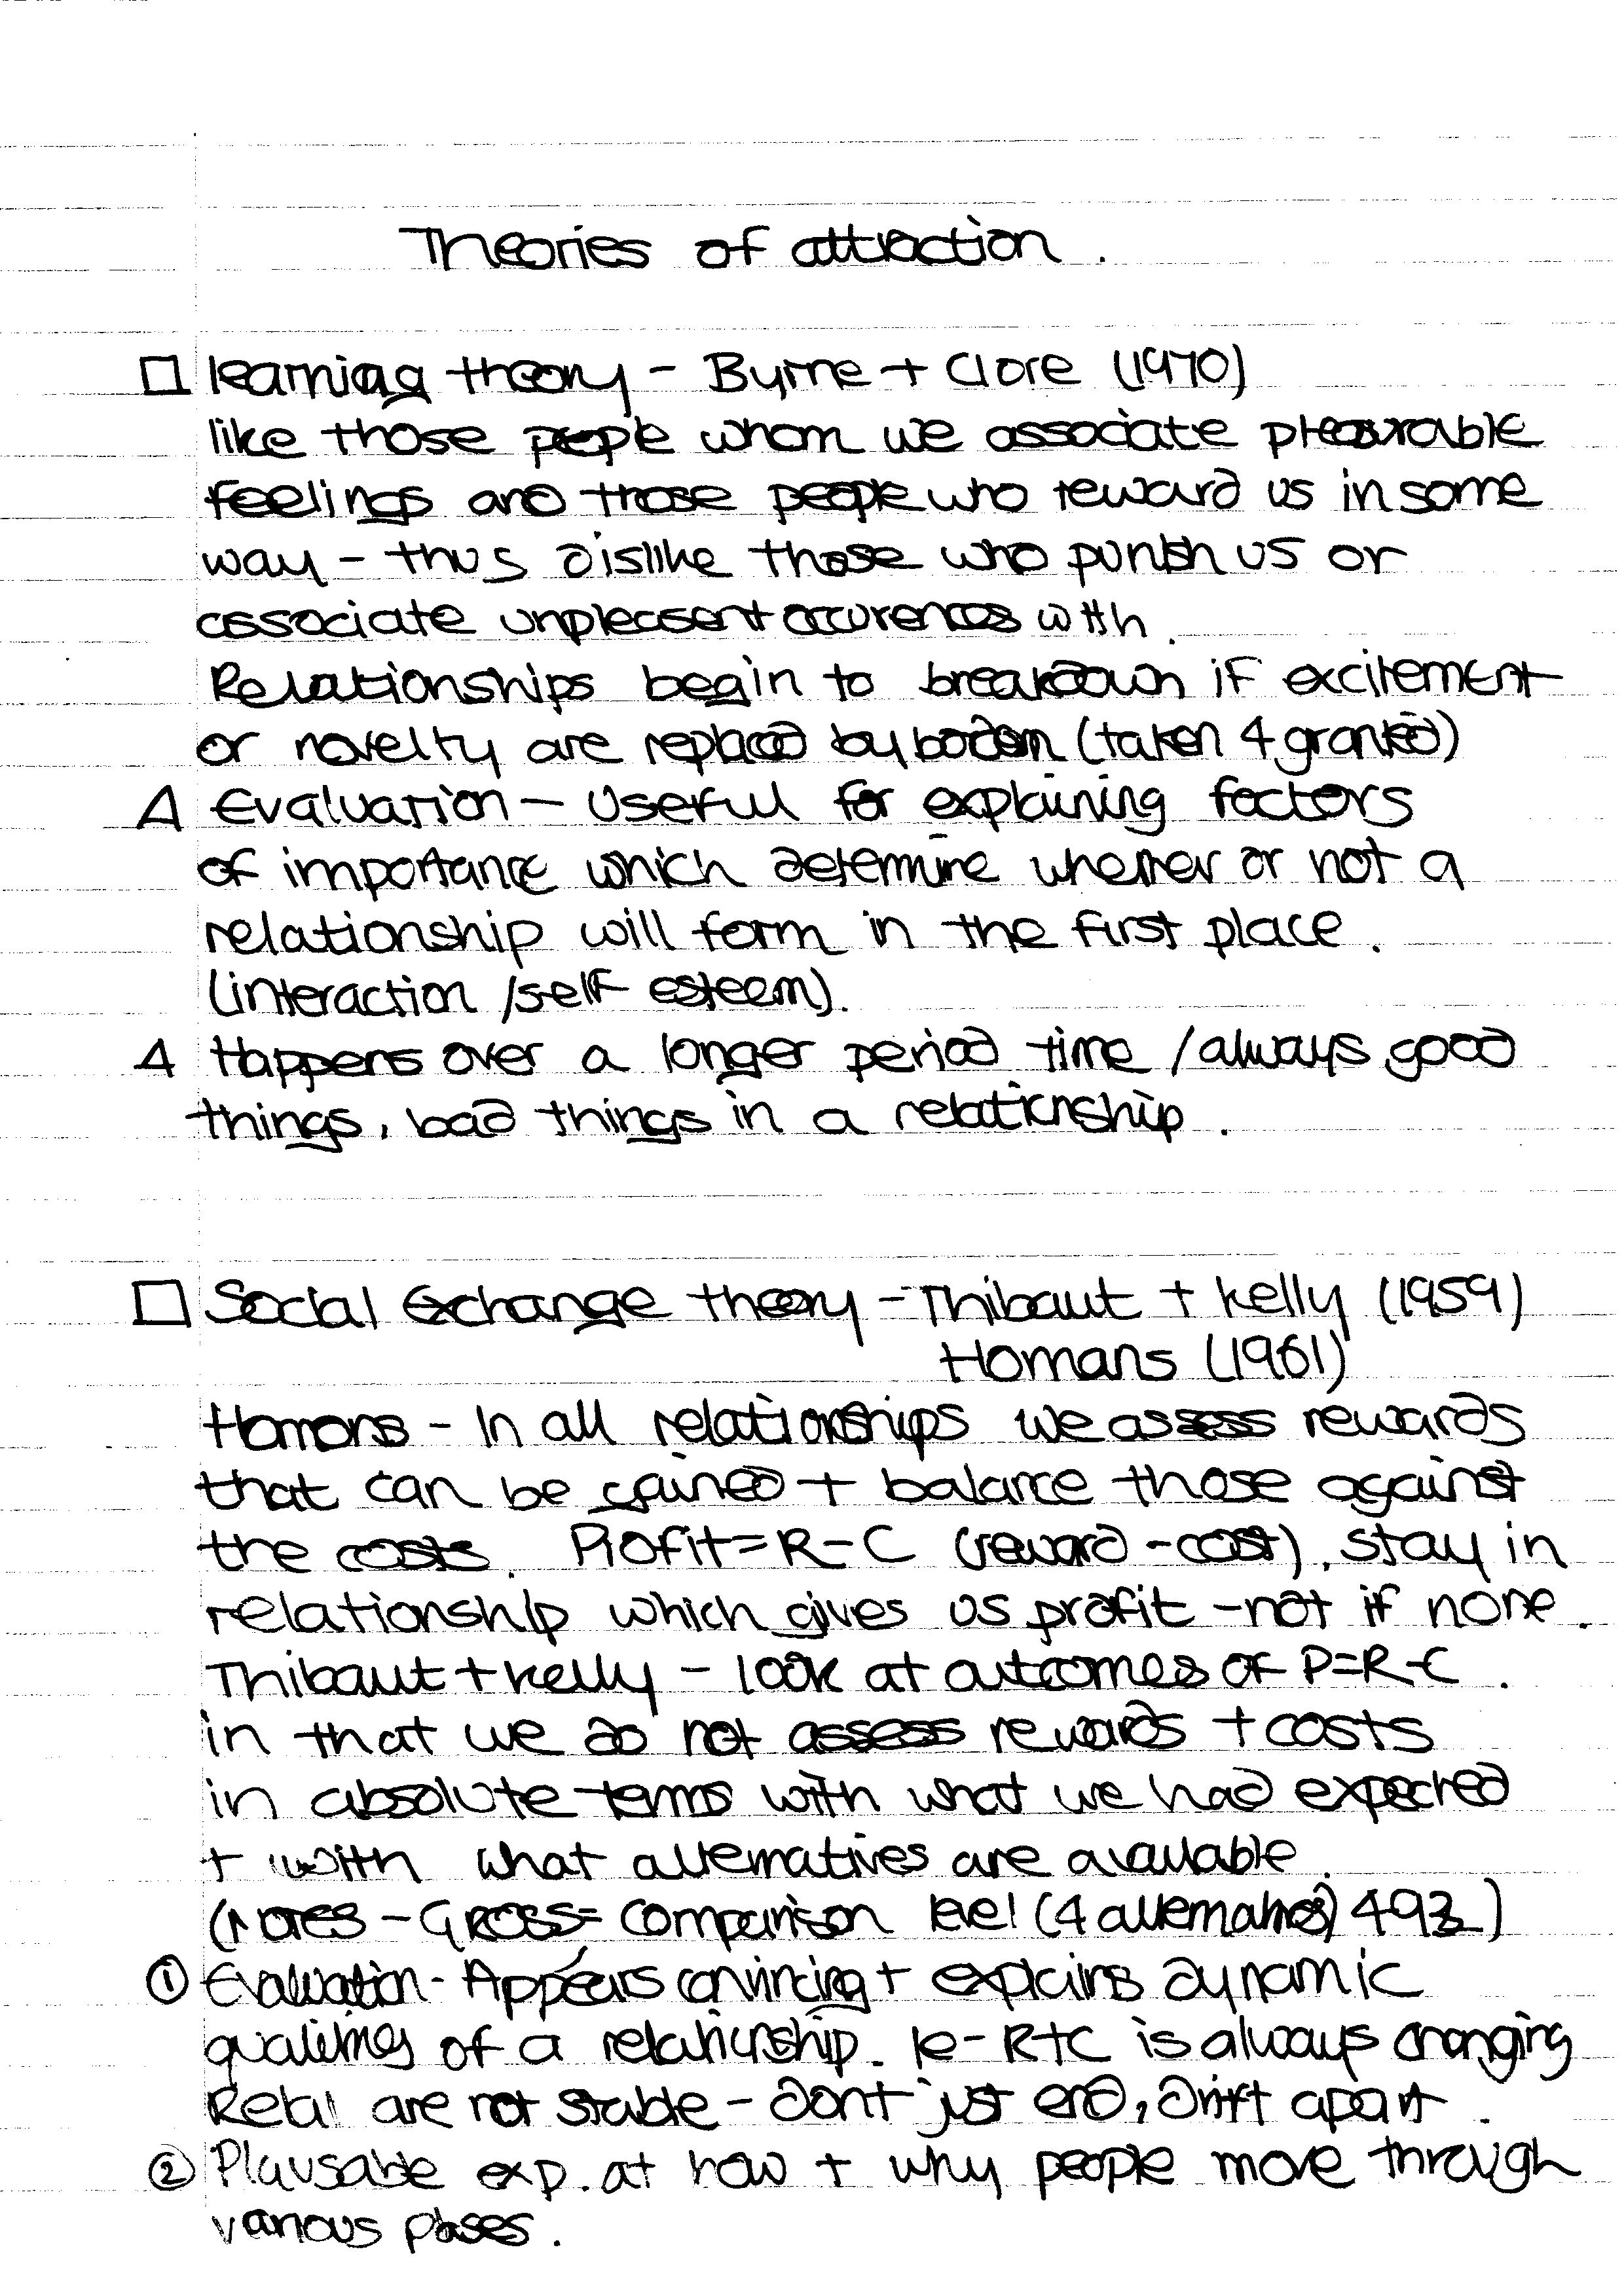 Theories of attraction.
□ learning theory - Byrne + Clore (1970)
like those people whom we associate pleasurable
feelings and those people who reward us in some
way - thus dislike those who punish us or
associate unpleasent occurences with.
Relationships begin to breakdown if excitement
or novelty are replaced by bordem (taken 4 granted)
Δ Evaluation - Useful for explaining factors
of importance which determine whether or not a
relationship will form in the first place.
(interaction / self esteem).
Δ Happens over a longer period time / always good
things, bad things in a relationship.
□ Social Exchange theory - Thibaut + Kelly (1959)
Homans (1961)
Homans - In all relationships we assess rewards
that can be gained + balance those against
the costs. Profit = R - C (reward - cost), stay in
relationship which gives us profit - not if none.
Thibaut + Kelly - look at outcomes of P=R-C.
in that we do not assess rewards + costs
in absolute terms with what we had expected
+ with what alternatives are available.
(Notes - GROSS = Comparison level (4 alternatives) 493)
① Evaluation - Appears convincing + explains dynamic
qualities of a relationship. ie - R+C is always changing
Relal are not stable - dont just end, drift apart.
② Plausable exp. at how + why people move through
various phases.